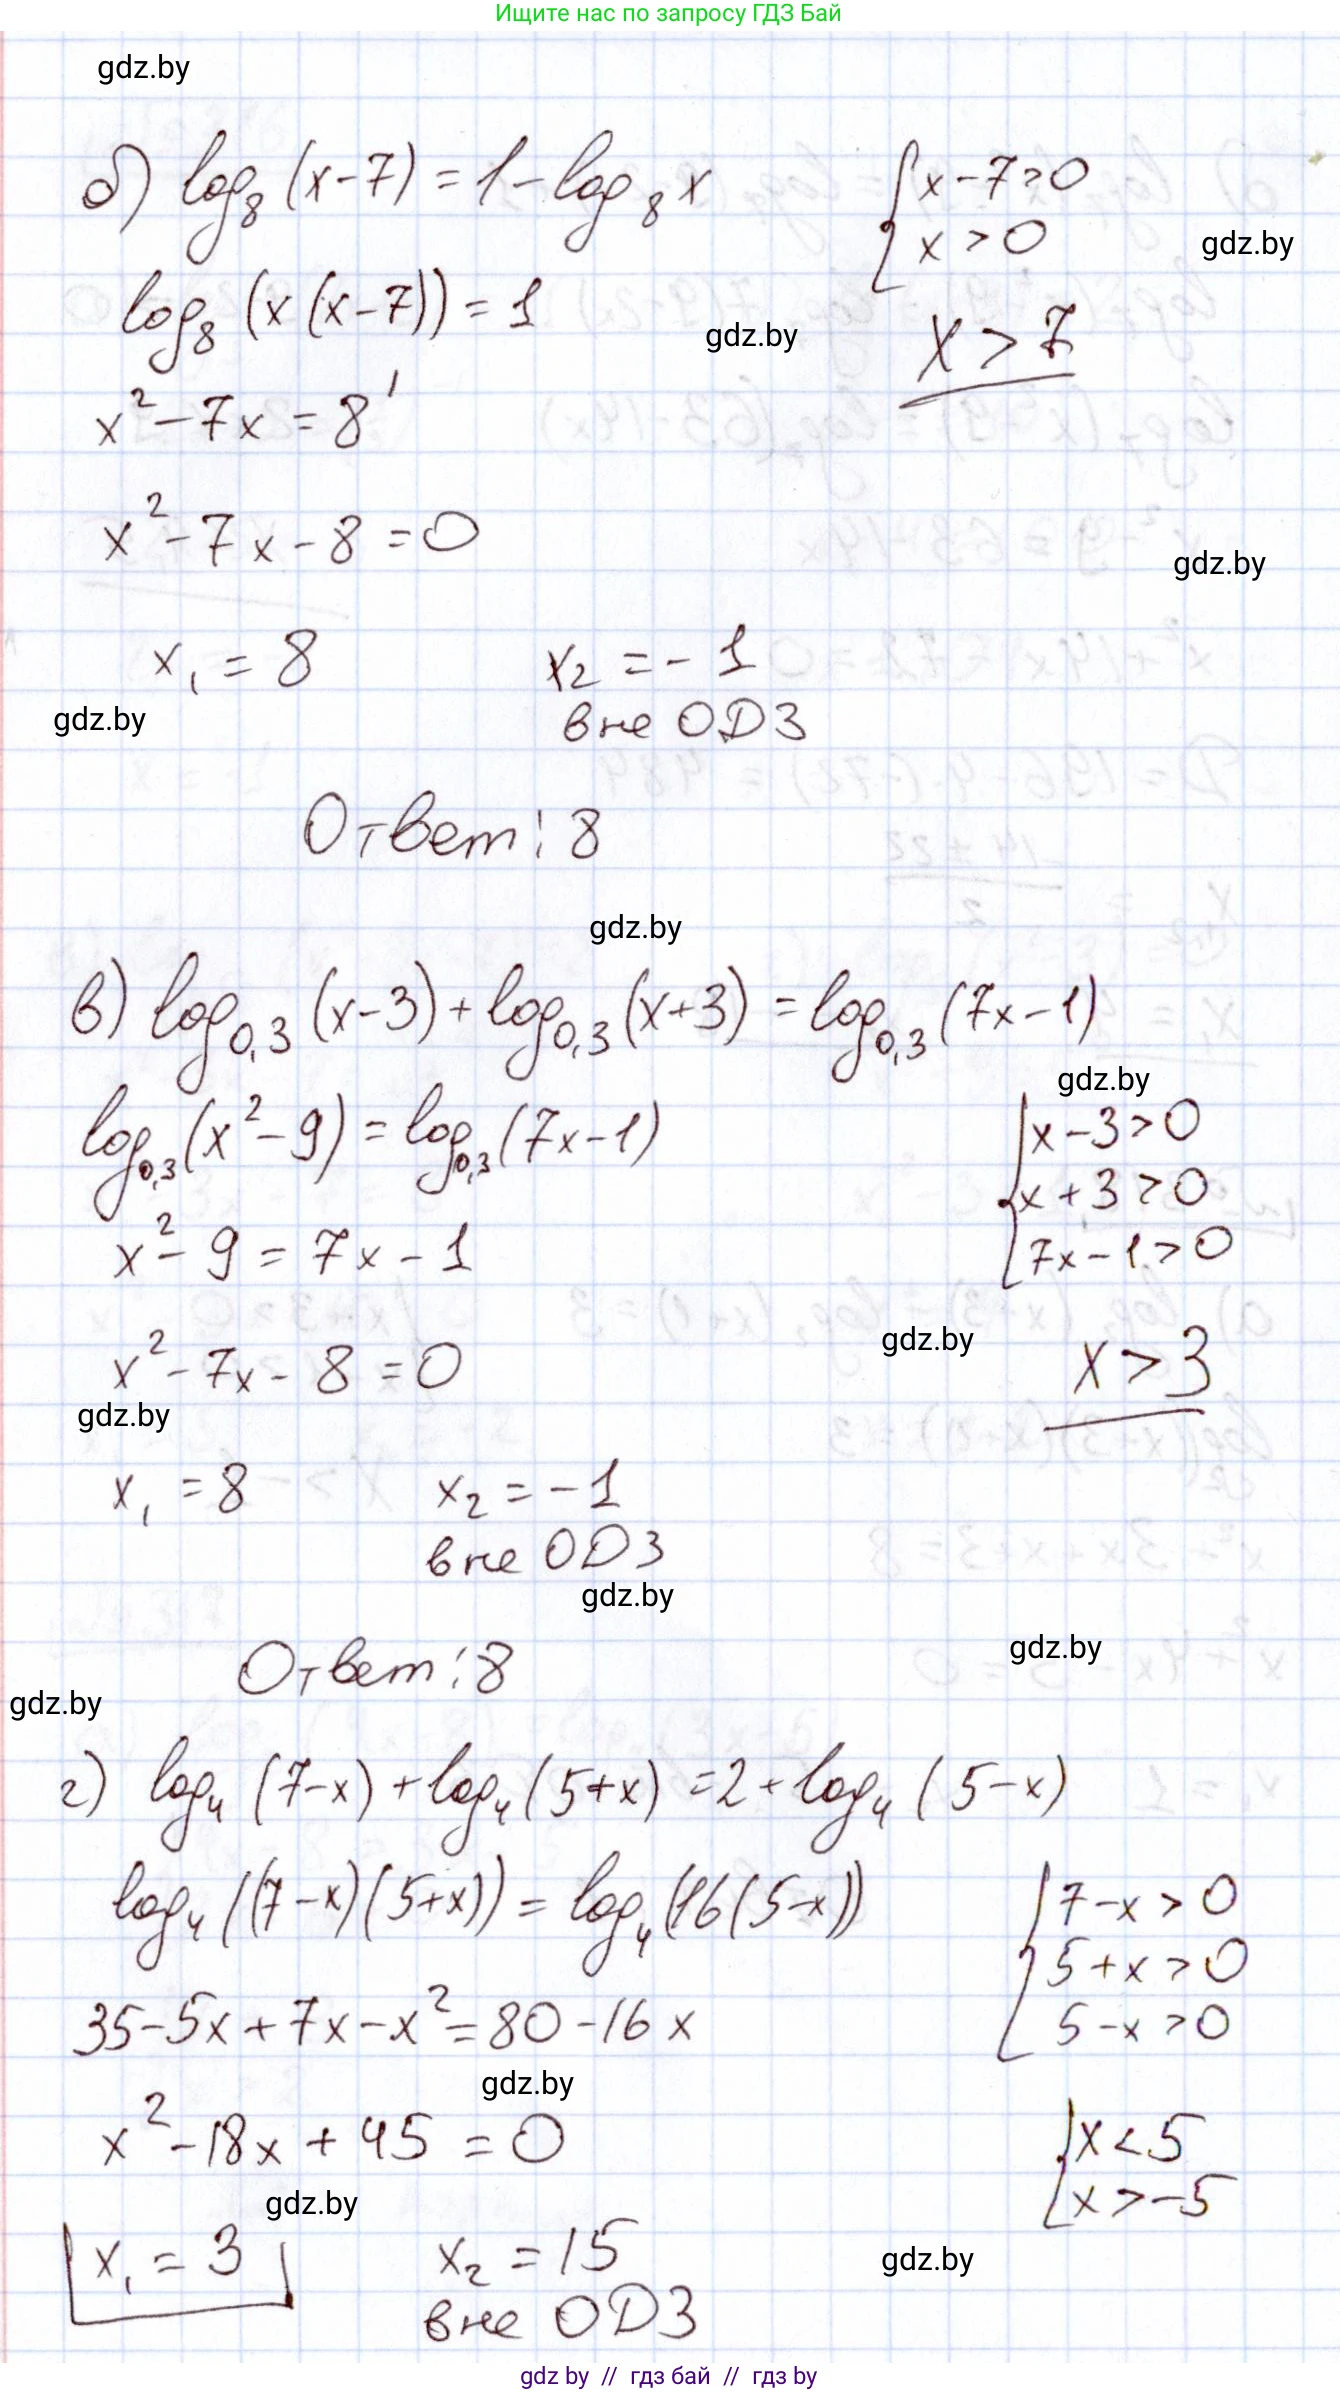 Ищите нас по запросу ГДЗ Бай
gdz.by
б) log₈ (x-7) = 1 - log₈ x
{ x-7>0
x > 0
gdz.by
log₈ (x(x-7)) = 1
gdz.by
x > 7
x² - 7x = 8¹
x² - 7x - 8 = 0
gdz.by
x₁ = 8
x₂ = - 1
gdz.by
вне ОДЗ
Ответ: 8
gdz.by
в) log₀,₃ (x-3) + log₀,₃ (x+3) = log₀,₃ (7x-1)
gdz.by
log₀,₃ (x²-9) = log₀,₃ (7x-1)
{ x-3>0
x+3>0
7x-1>0
x² - 9 = 7x - 1
gdz.by
x > 3
x² - 7x - 8 = 0
gdz.by
x₁ = 8
x₂ = - 1
вне ОДЗ
gdz.by
gdz.by
Ответ: 8
gdz.by
г) log₄ (7-x) + log₄ (5+x) = 2 + log₄ (5-x)
log₄ ((7-x)(5+x)) = log₄ (16(5-x))
{ 7-x > 0
5+x > 0
5-x > 0
35-5x+7x-x² = 80-16x
gdz.by
x² - 18x + 45 = 0
{ x < 5
x > -5
gdz.by
x₁ = 3
x₂ = 15
gdz.by
вне ОДЗ
gdz by // гдз бай // гдз by